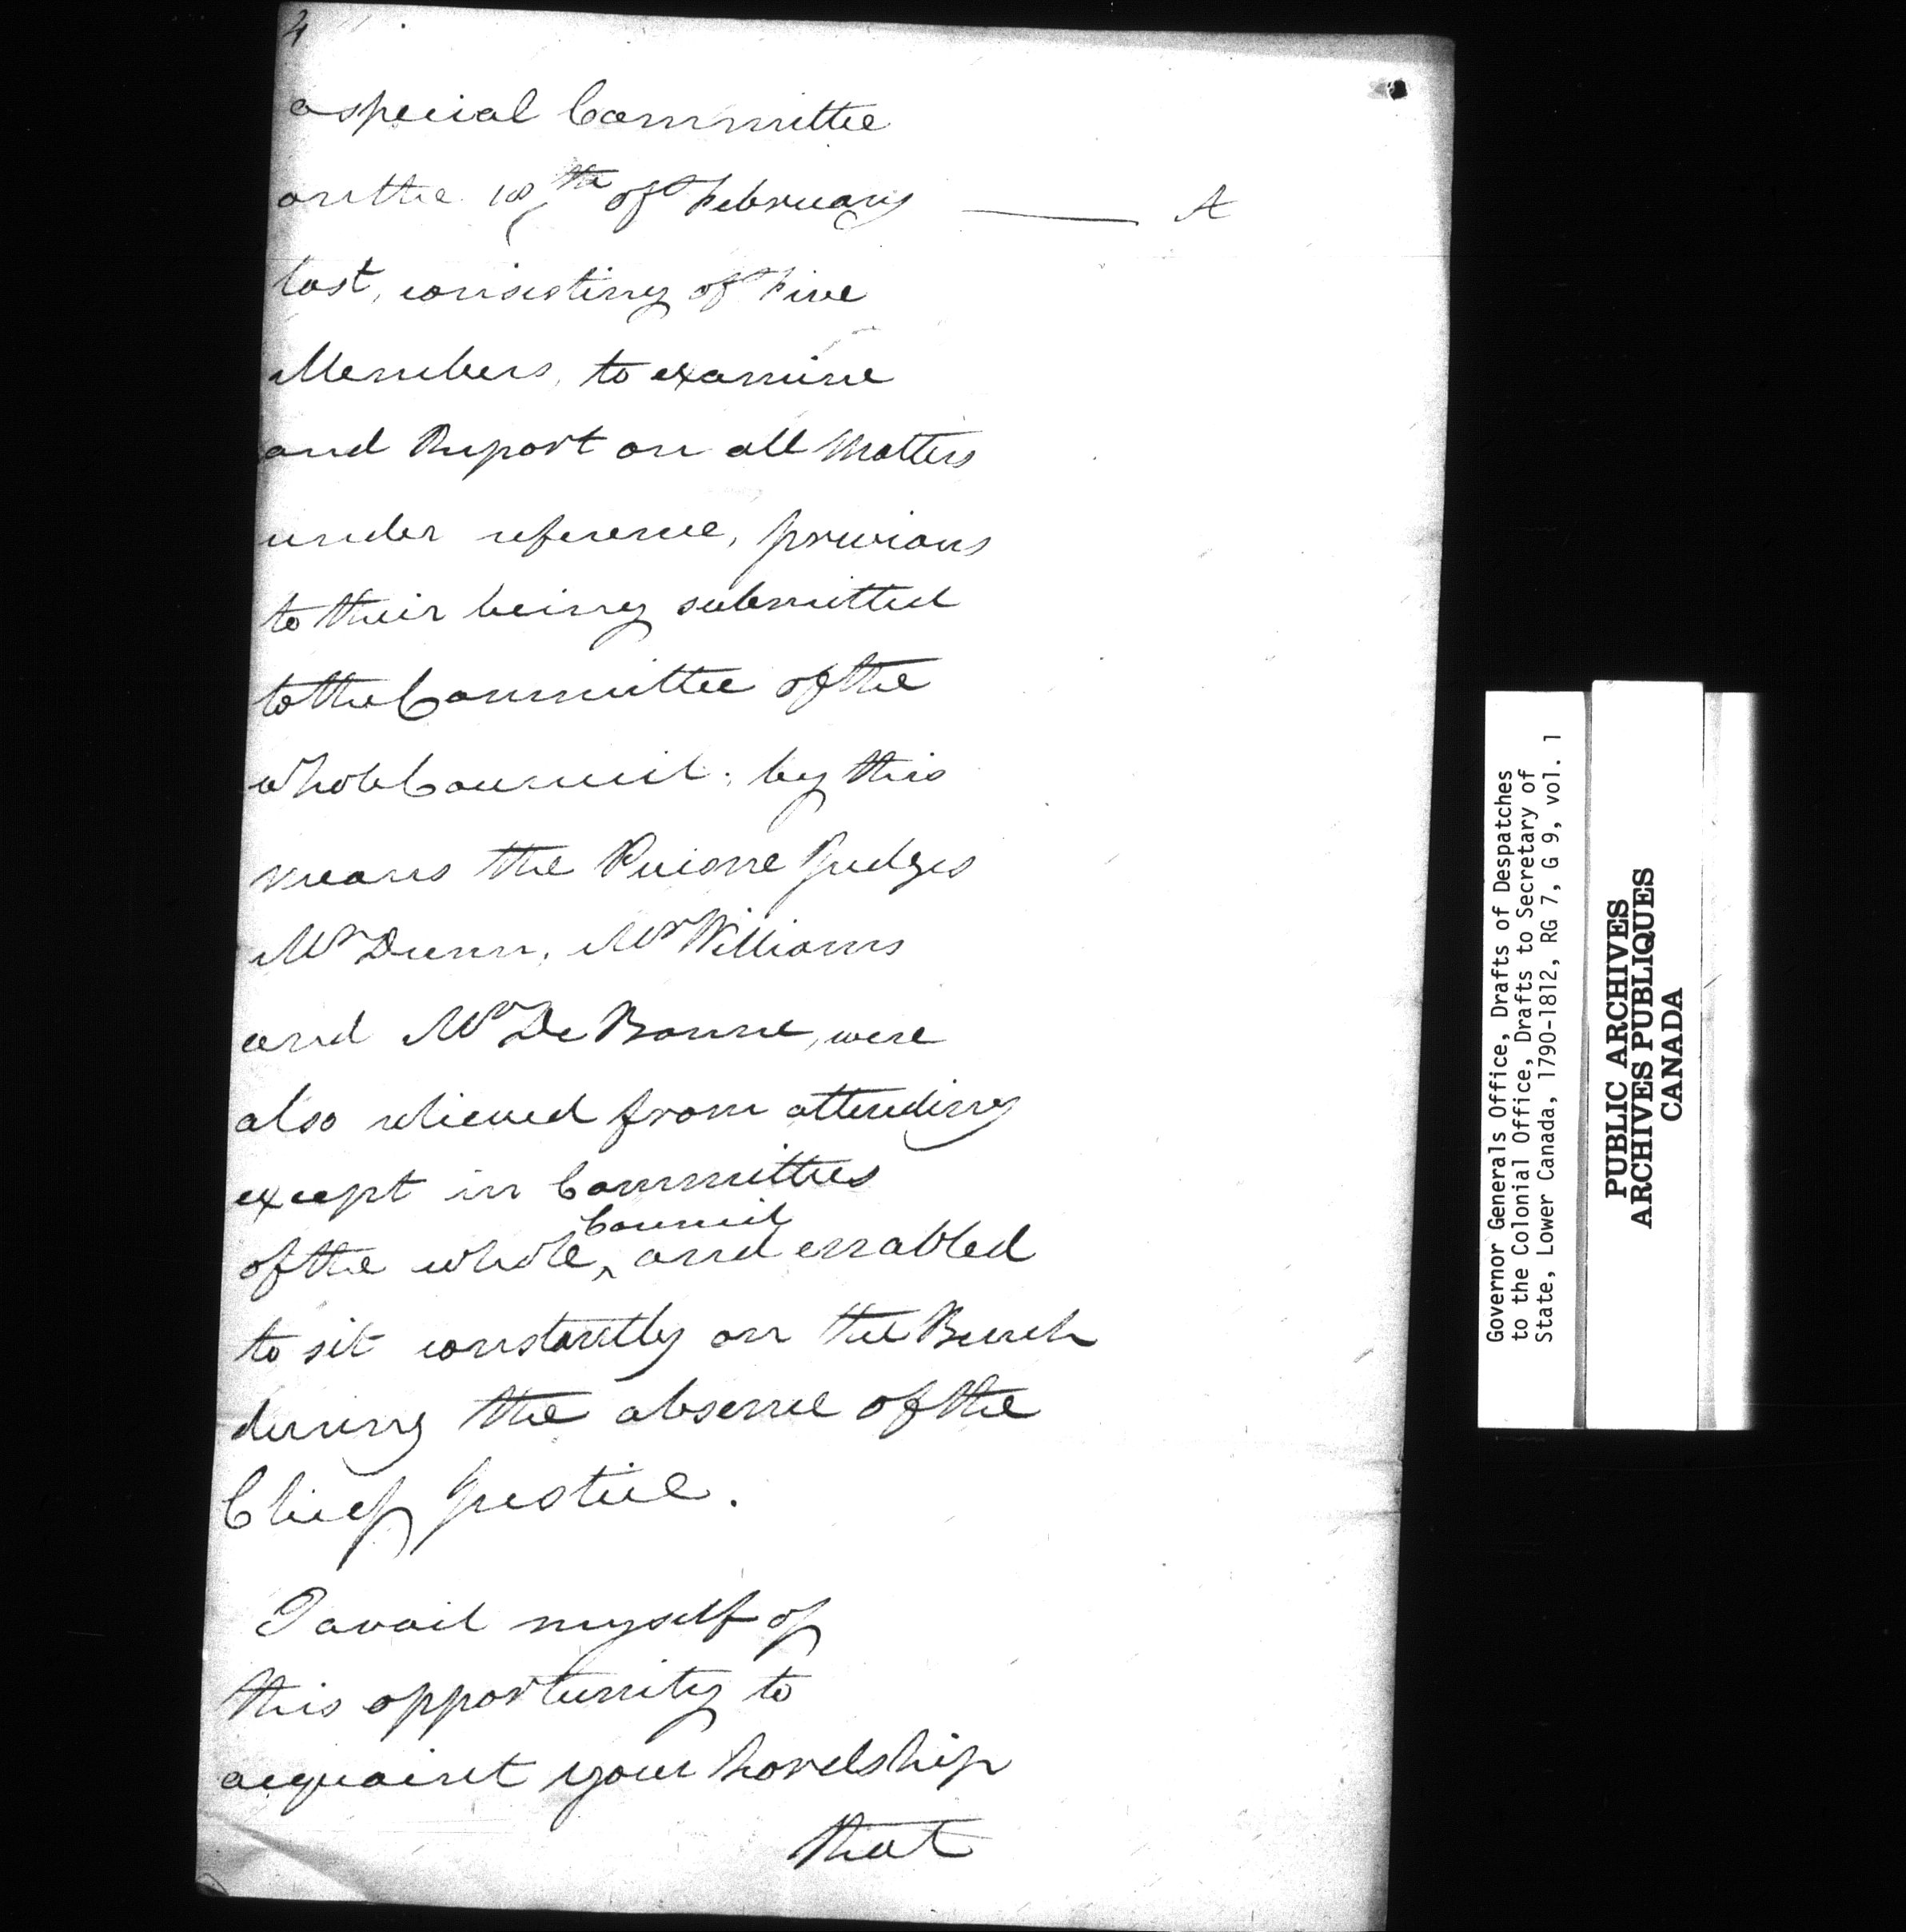 4
a special Committee
on the 18th of February —— A
last, consisting of Five
Members, to examine
and Report on all Matters
under reference, previous
to their being submitted
to the Committee of the
whole Council; by this
means the Puisne Judges
Mr Dunn, Mr Williams
and Mr De Bonne, were
also relieved from attending
except in Committees
of the whole ^Council and enabled
to sit constantly on the Bench
during the absence of the
Chief Justice.
I avail myself of
this opportunity to
acquaint your Lordship
that
Governor Generals Office, Drafts of Despatches
to the Colonial Office, Drafts to Secretary of
State, Lower Canada, 1790-1812, RG 7, G 9, vol. 1
PUBLIC ARCHIVES
ARCHIVES PUBLIQUES
CANADA